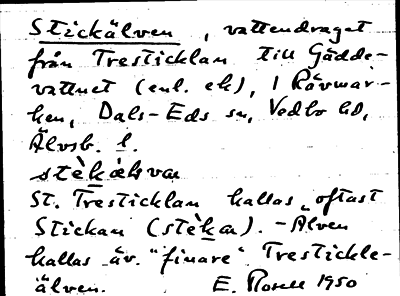 Stickälven, vattendraget
från Tresticklan till Gädde-
vattnet (enl. ek), i Rävmar-
ken, Dals-Eds sn, Vedbo hd,
Älvsb. l.
stèkæ̀lvan
St. Tresticklan kallas oftast
Stickan (stèka). - Älven
kallas äv. "finare" Trestickle-
älven. E. Rosell 1950